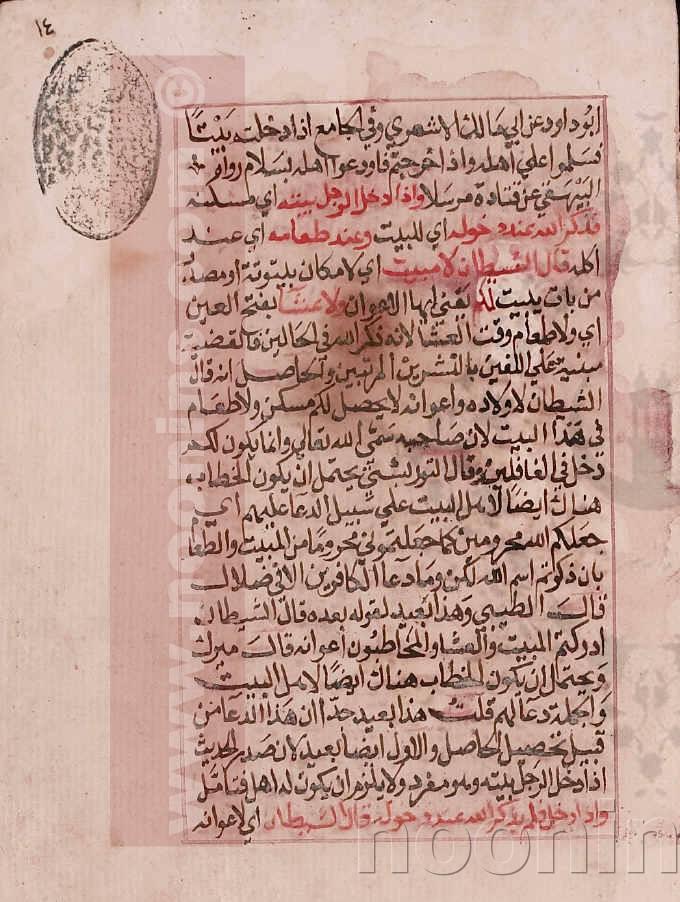 ١٤
ابوداود عن ابي مالك الاشعري وفي الجامع اذا دخلتم بيتا
فسلموا علي اهله واذا خرجتم فاودعوا اهله بسلام رواه
البيهقي عن قتادة مرسلا واذا دخل الرجل بيته اي مسكنه
فذكر الله عند دخوله اي للبيت وعند طعامه اي عند
اكله قال الشيطان لا مبيت اي لا مكان بيتوتة او مصدر
من بات يبيت لكم يعني ايها الاعوان ولا عشا بفتح العين
اي ولا طعام وقت العشا لانه ذكر الله في الحالين فالقضية
مبنية علي اللفين بالنشرين المرتبين والحاصل انه قال
الشيطان لاولاده واعوانه لا يحصل لكم مسكن ولا طعام
في هذا البيت لان صاحبه سمي الله تعالي وانما يكون لكم
دخل في الغافلين وقال التوربشتي يحتمل ان يكون الخطاب
هناك ايضا لاهل البيت علي سبيل الدعا عليهم اي
جعلكم الله محرومين كما جعلتموني محروما من المبيت والطعا
بان ذكرتم اسم الله لكن وما دعا الكافرين الا في ضلال
قال الطيبي وهذا بعيد لقوله بعده قال الشيطان
ادركتم المبيت والعشا والمخاطبون اعوانه قال ميرك
ويحتمل ان يكون الخطاب هناك ايضا لاهل البيت
والجملة دعا لهم قلت هذا بعيد جدا ان هذا الدعا من
قبيل تحصيل الحاصل والاول ايضا بعيد لان صدر الحديث
اذا دخل الرجل بيته وهو مفرد ولا يلزم ان يكون له اهل فتامل
واذا دخل فلم يذكر الله عند دخوله قال الشيطان اي لاعوانه
www.noonin
noonin